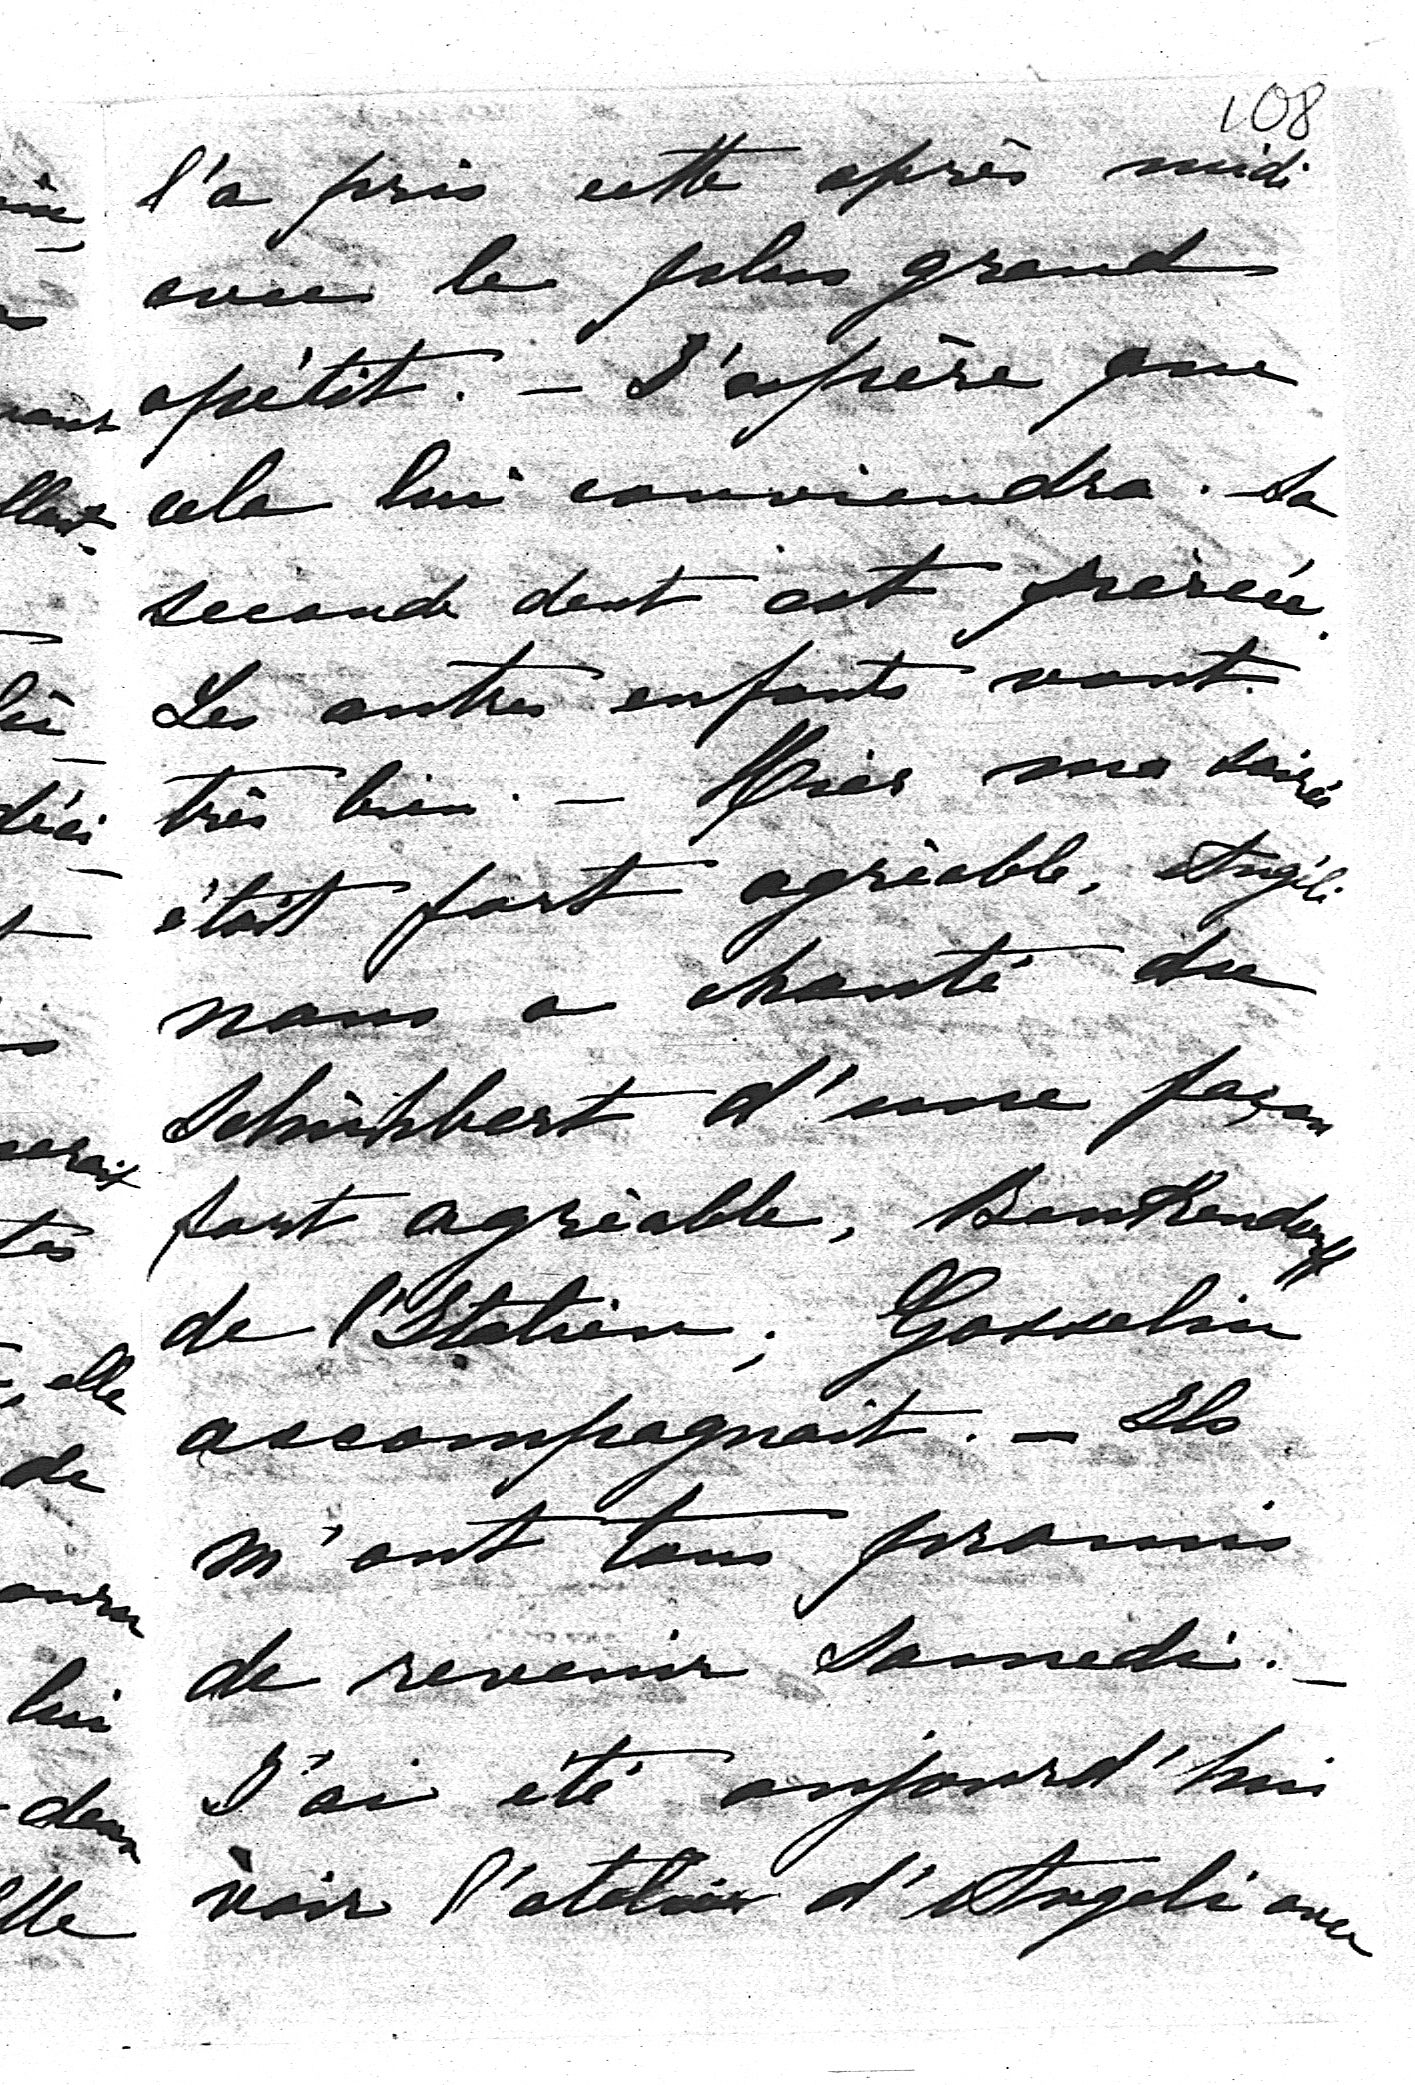 108
l'a pris cette après midi
avec le plus grand
apétit. — J'espère que
cela lui conviendra. Sa
seconde dent est percée.
Les autres enfants vont
très bien. — Hier ma soirée
était fort agréable, Angéli
nous a chanté du
Schubbert d'une façon
fort agréable, Benkendorff
de l'Italien, Gosselin
accompagnait. — Ils
m'ont tous promis
de revenir Samedi. —
J'ai été aujourd'hui
voir l'atelier d'Angeli avec